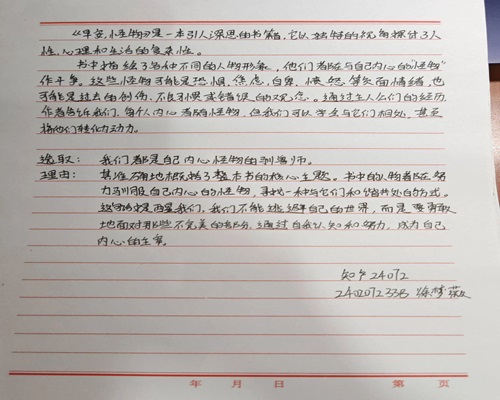 《早安，怪物》是一本引人深思的书籍，它以独特的视角探讨了人
性、心理和生活的复杂性。
书中描绘了各种不同的人物形象，他们都在与自己内心的"怪物"
作斗争。这些怪物可能是恐惧、焦虑、自卑、愤怒等负面情绪，也
可能是过去的创伤、不良习惯或错误的观念。通过主人公们的经历
作者告诉我们，每个人内心都有怪物，但我们可以学会与它们相处，甚至
将他们转化为动力。
选取：我们都是自己内心怪物的驯兽师。
理由：其准确地概括了整本书的核心主题。书中的人物都在努
力驯服自己内心的怪物，寻找一种与它们和谐共处的方式。
这句话提醒我们，我们不能逃避自己的世界，而是要勇敢
地面对那些不完美的部分，通过自我认知和努力，成为自己
内心的主宰。
知产24072
2402072338 徐梦
年 月 日 第 页